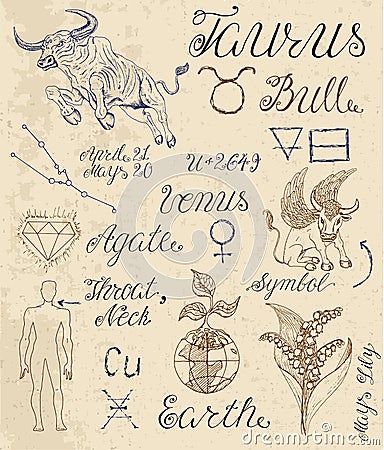 Taurus
Bull
April 21
May 20
U+2649
Venus
Agate
Symbol
Throat,
Neck
Cu
Earth
May's Lily
dreamstime